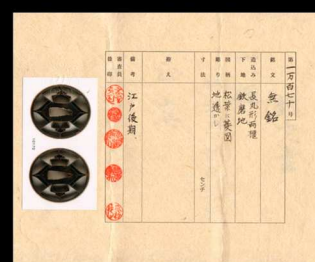 第一万百七十号
銘文 無銘
造込み 長丸形両櫃
下地 鉄磨地
図柄 松葉に菱図
彫り 地透かし
寸法 センチ
拵え
備考 江戸後期
審査員